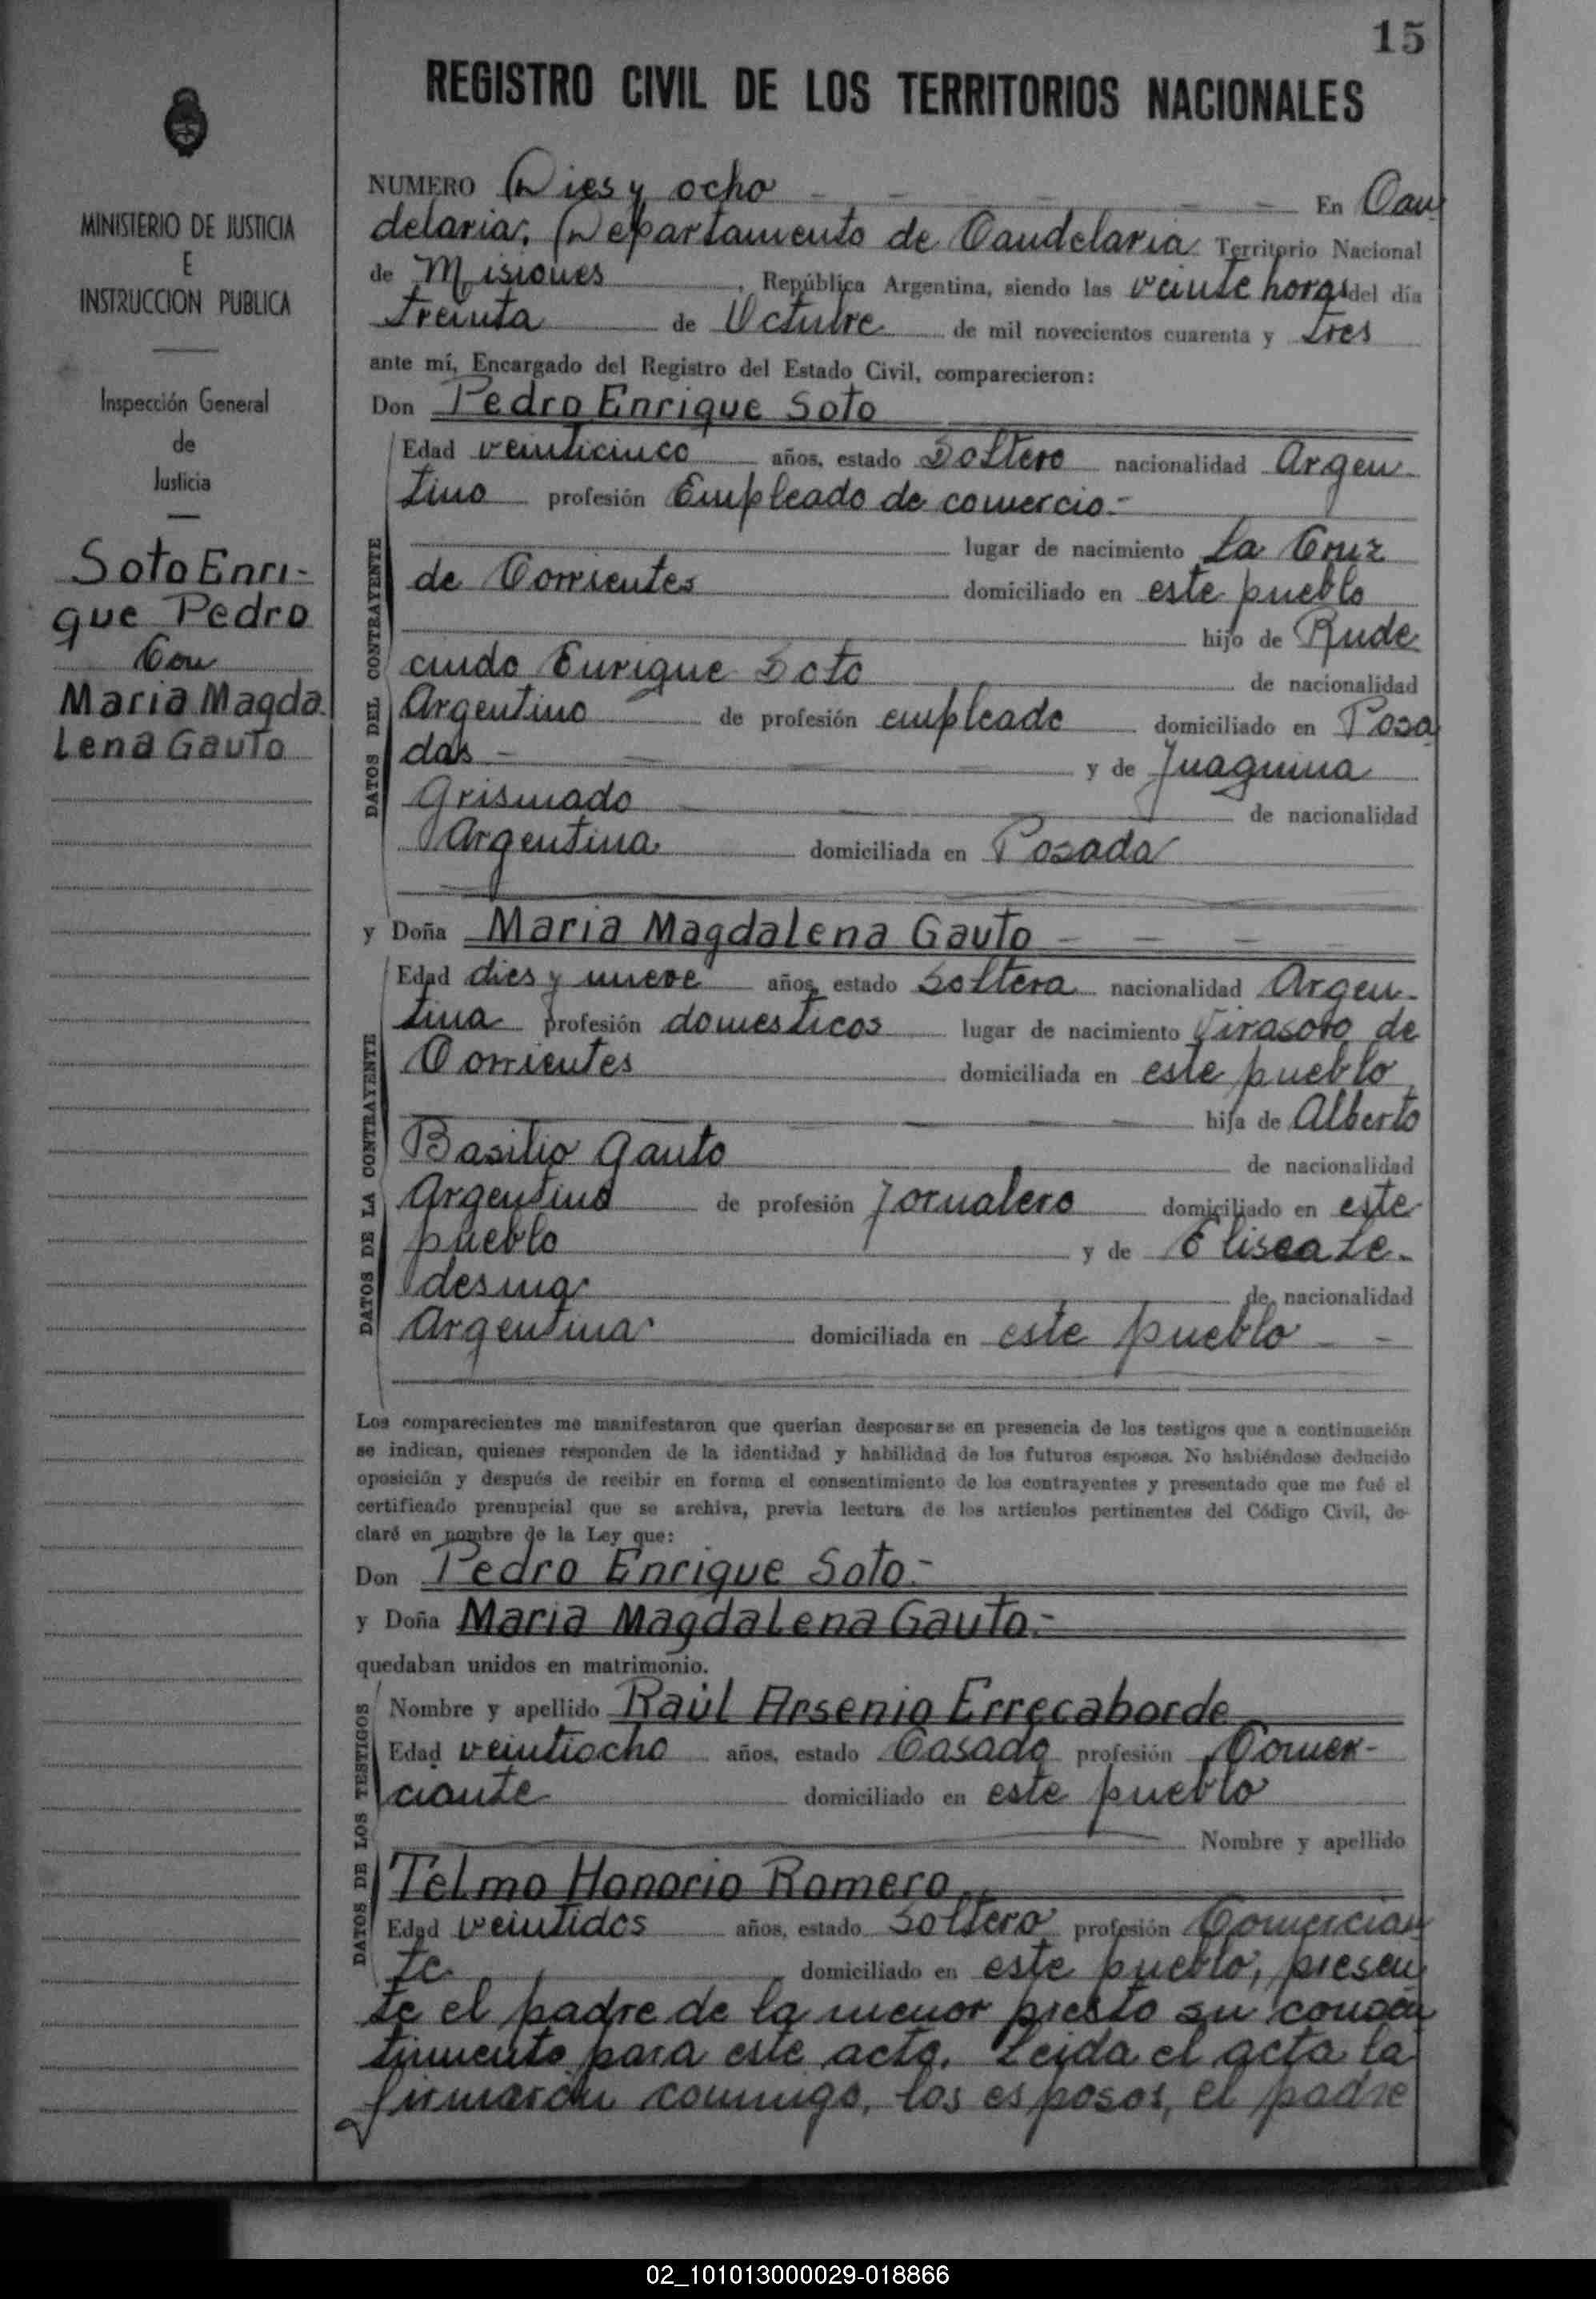 15
REGISTRO CIVIL DE LOS TERRITORIOS NACIONALES
MINISTERIO DE JUSTICIA
E
INSTRUCCION PUBLICA
Inspección General
de
Justicia
Soto Enri-
que Pedro
Con
Maria Magda
Lena Gauto
NUMERO Dies y ocho - - - - - En Can
delaria, Departamento de Candelaria Territorio Nacional
de Misiones, República Argentina, siendo las veinte horas del día
treinta de Octubre de mil novecientos cuarenta y tres
ante mí, Encargado del Registro del Estado Civil, comparecieron:
Don Pedro Enrique Soto
DATOS DEL CONTRAYENTE
Edad veinticinco años, estado Soltero nacionalidad Argen-
tino profesión Empleado de comercio.-
lugar de nacimiento La Cruz
de Corrientes domiciliado en este pueblo
hijo de Rude
cindo Enrique Soto de nacionalidad
Argentino de profesión empleado domiciliado en Posa
das - y de Juaquina
Grismado de nacionalidad
Argentina domiciliada en Posada
y Doña Maria Magdalena Gauto - - - -
DATOS DE LA CONTRAYENTE
Edad dies y nueve años, estado Soltera nacionalidad Argen-
tina profesión domesticos lugar de nacimiento Virasoro de
Corrientes domiciliada en este pueblo
hija de Alberto
Basilio Gauto de nacionalidad
Argentino de profesión Jornalero domiciliado en este
pueblo y de Elisea Le-
desma de nacionalidad
Argentina domiciliada en este pueblo - -
Los comparecientes me manifestaron que querían desposarse en presencia de los testigos que a continuación
se indican, quienes responden de la identidad y habilidad de los futuros esposos. No habiéndose deducido
oposición y después de recibir en forma el consentimiento de los contrayentes y presentado que me fué el
certificado prenupcial que se archiva, previa lectura de los artículos pertinentes del Código Civil, de-
claré en nombre de la Ley que:
Don Pedro Enrique Soto.-
y Doña Maria Magdalena Gauto.-
quedaban unidos en matrimonio.
DATOS DE LOS TESTIGOS
Nombre y apellido Raúl Arsenio Errecaborde
Edad veintiocho años, estado Casado profesión Comer-
ciante domiciliado en este pueblo
Nombre y apellido
Telmo Honorio Romero
Edad veintidos años, estado Soltero profesión Comercian
te domiciliado en este pueblo, presen
te el padre de la menor presto su consen
timiento para este acto. Leida el acta la
firmaron conmigo, los esposos, el padre
02_101013000029-018866